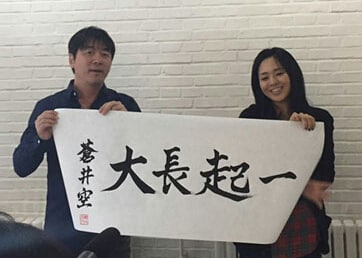 一起長大
蒼井空